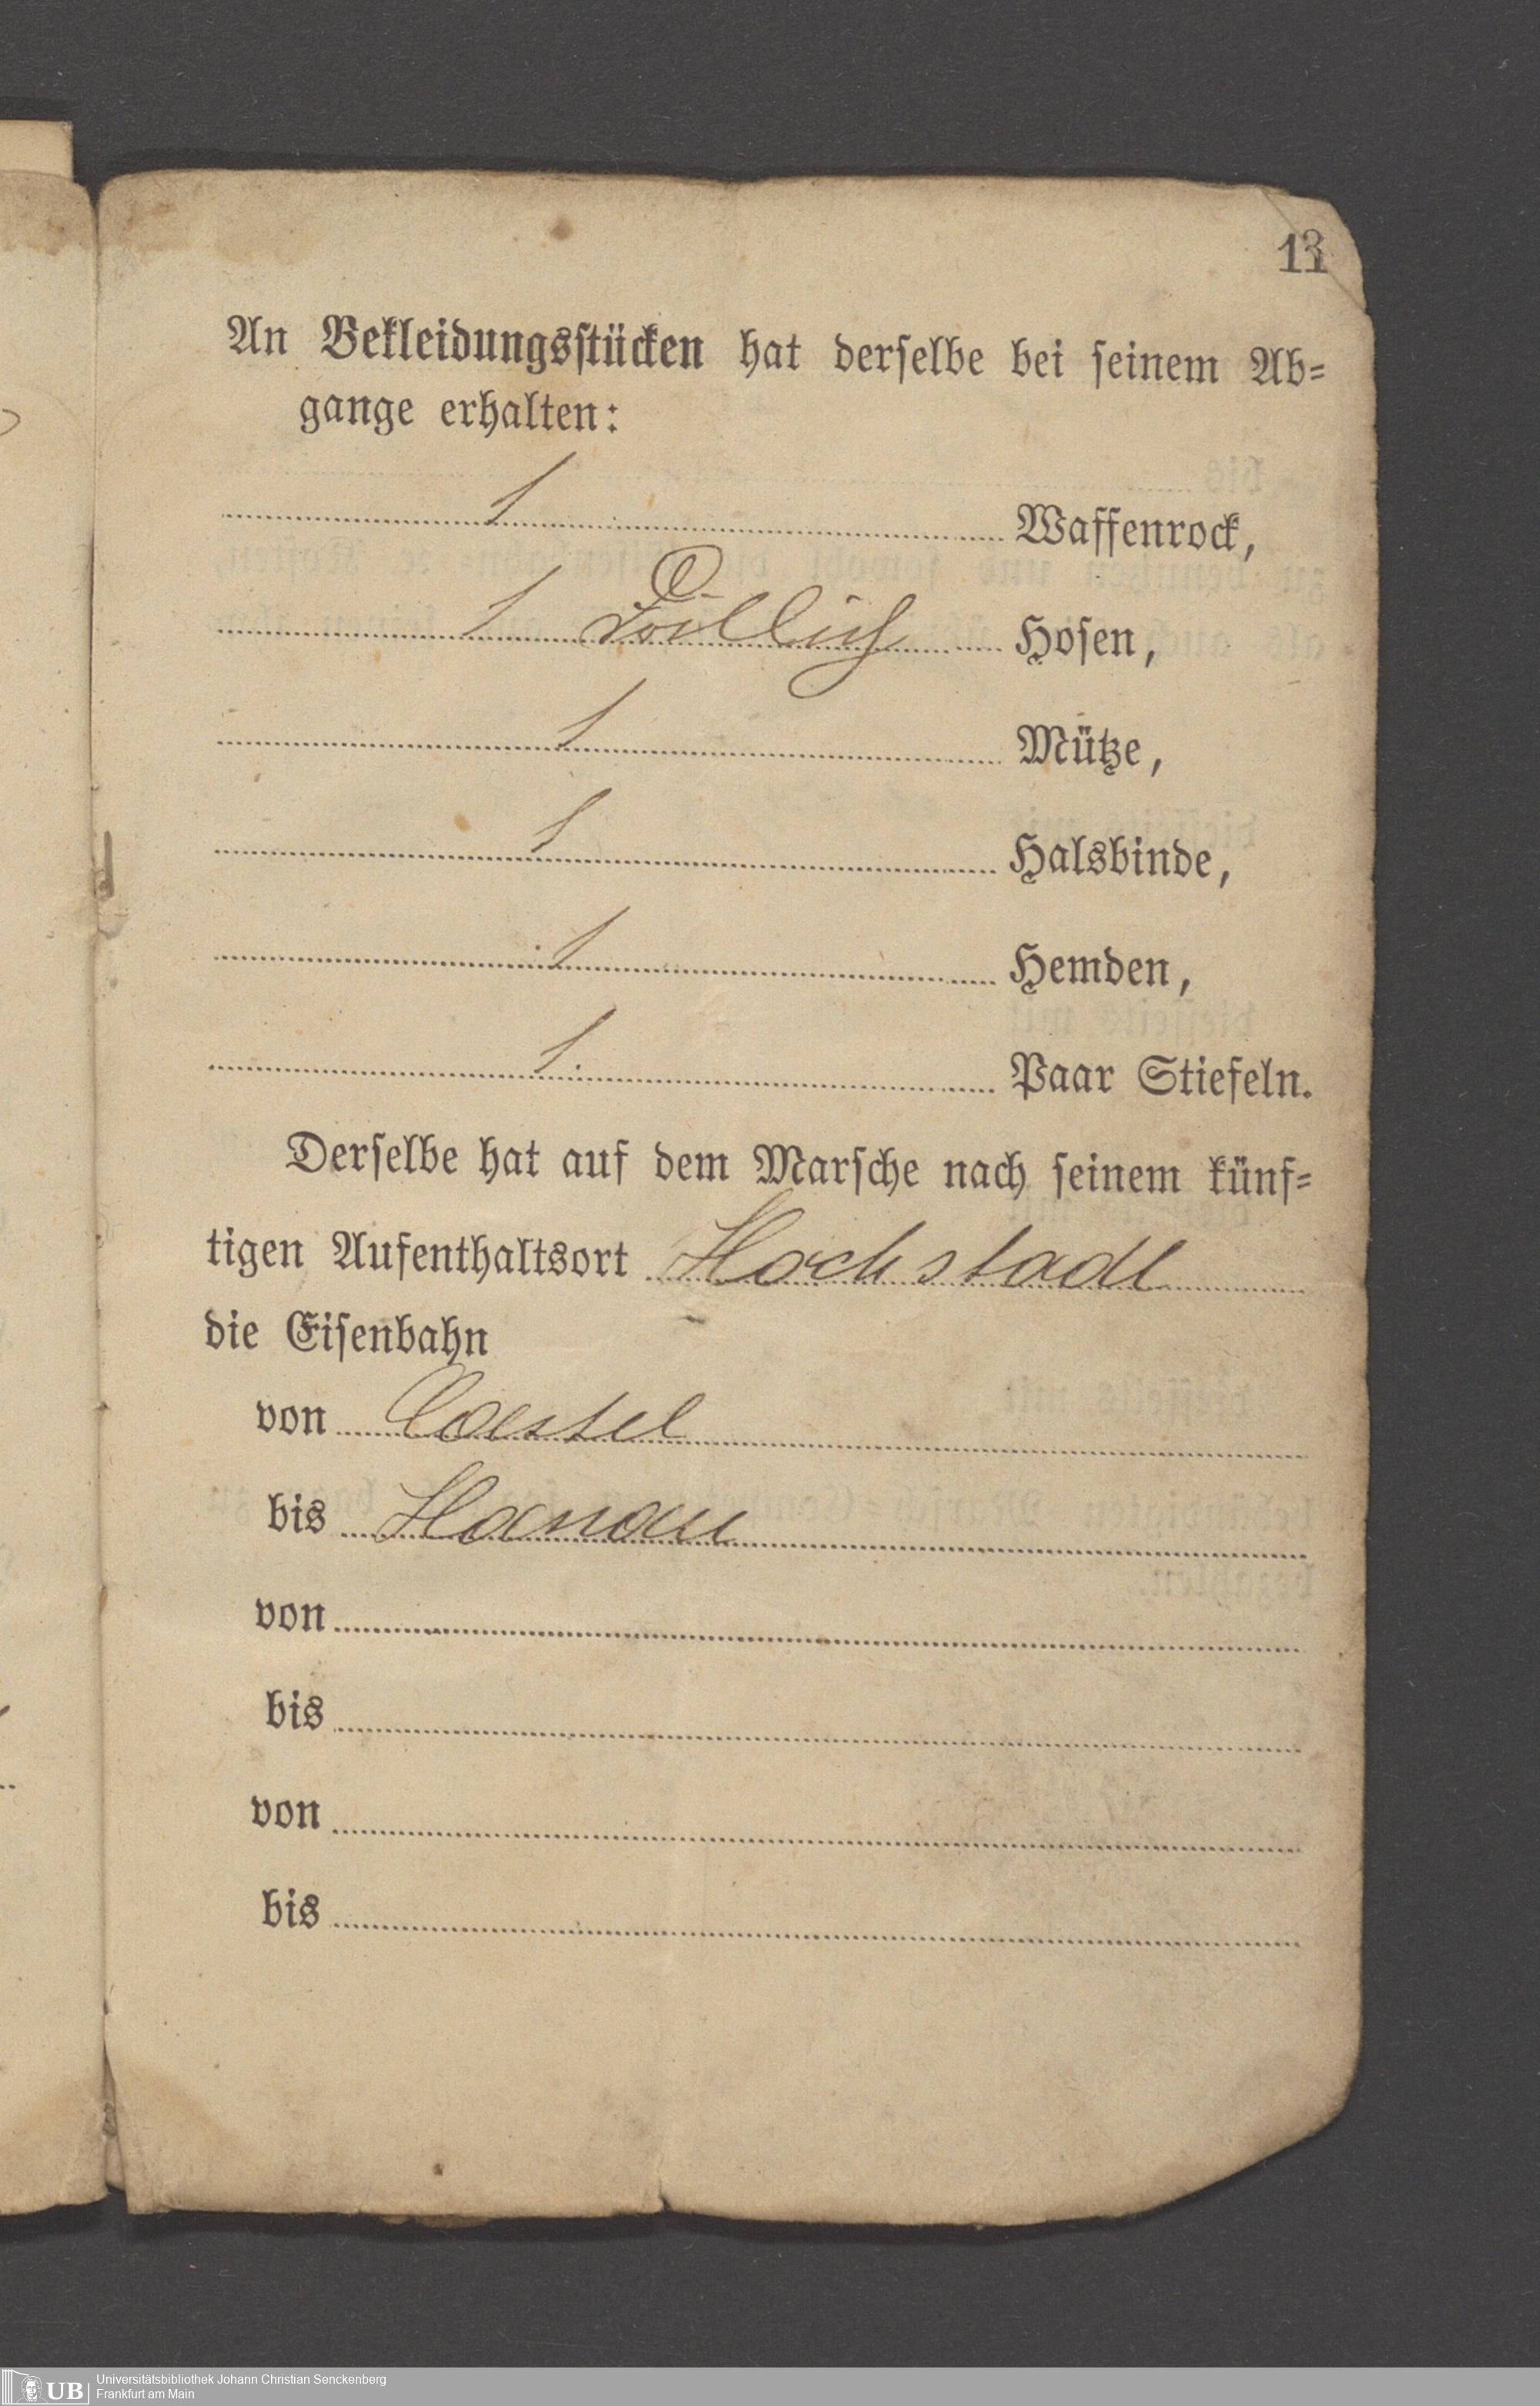 13
An Bekleidungsstücken hat derselbe bei seinem Ab-
gange erhalten:
1 Waffenrock,
1 Drillich Hosen,
1 Mütze,
1 Halsbinde,
1 Hemden,
1. Paar Stiefeln.
Derselbe hat auf dem Marsche nach seinem künf-
tigen Aufenthaltsort Hochstadt
die Eisenbahn
von Cassel
bis Hanau
von
bis
von
bis
UB
Universitätsbibliothek Johann Christian Senckenberg
Frankfurt am Main